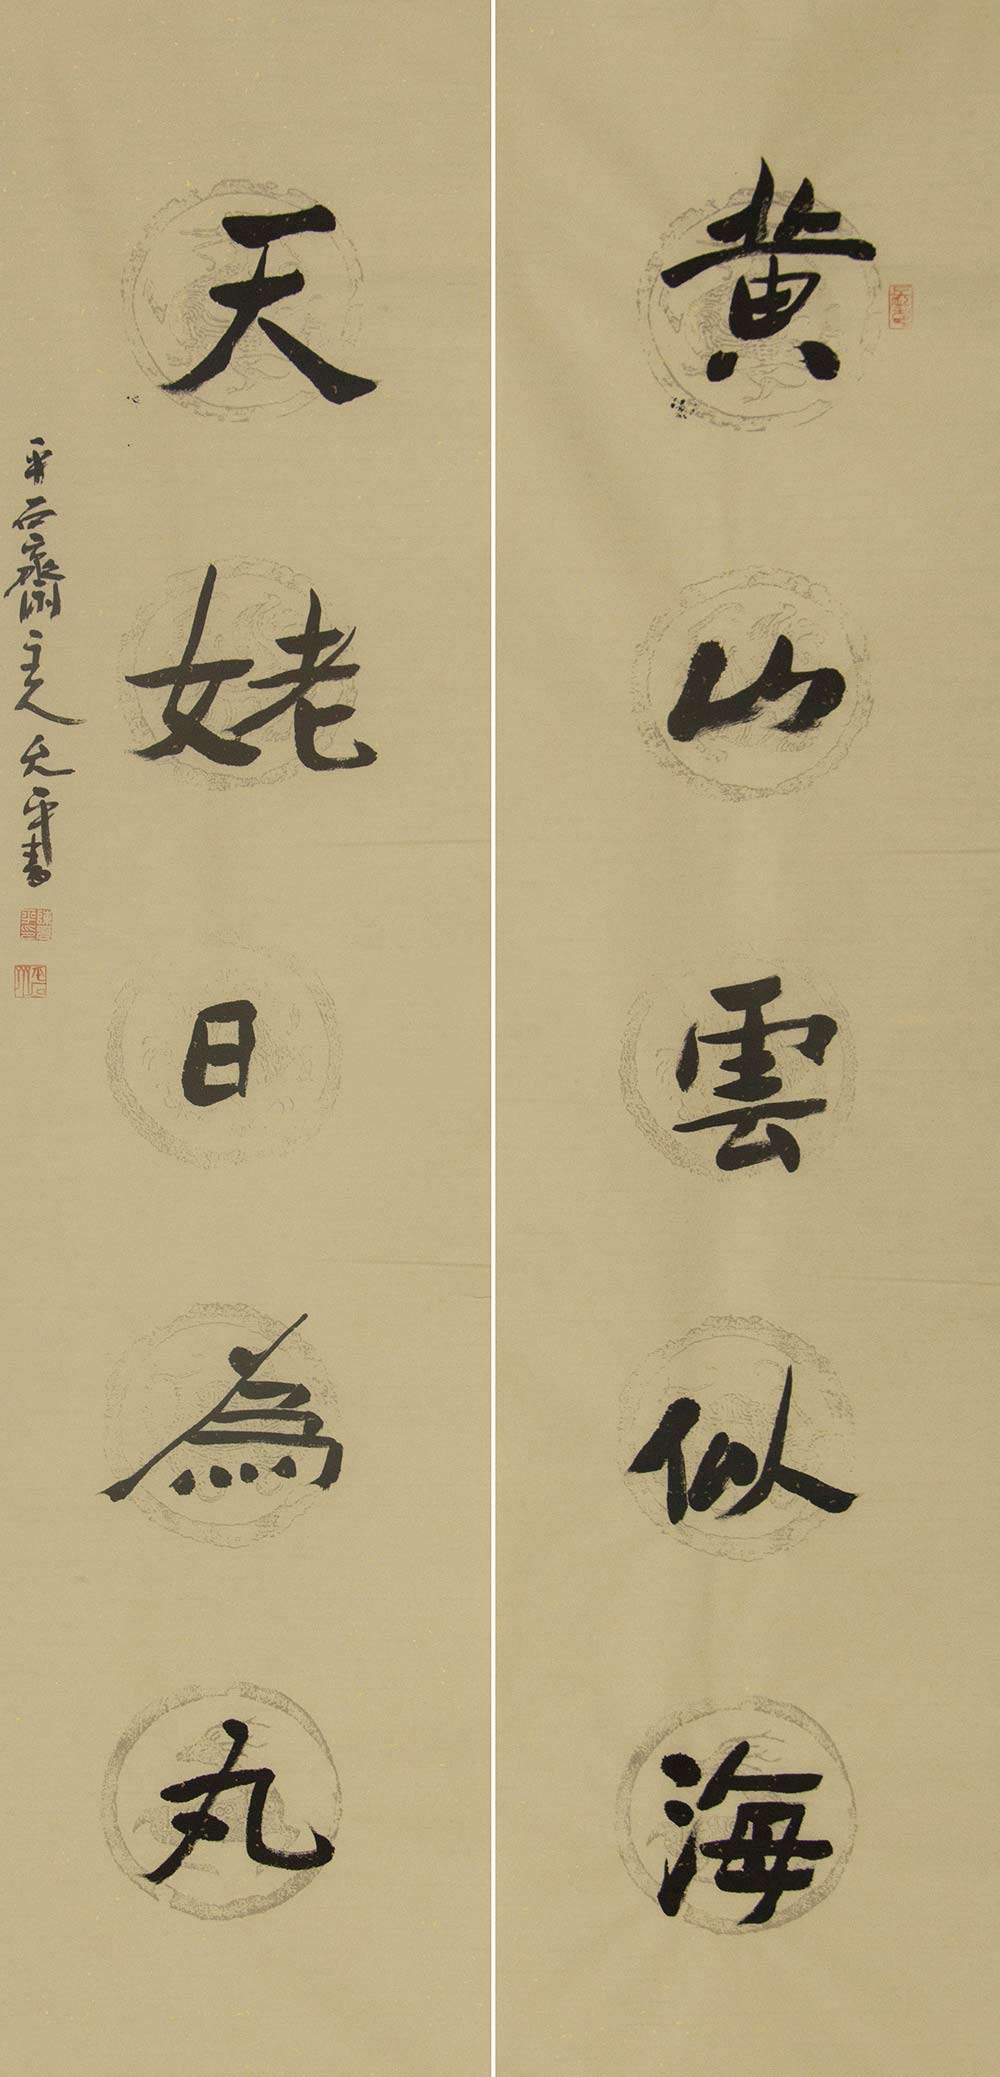 黄山雲似海
天姥日為丸
平石齋主人允平書